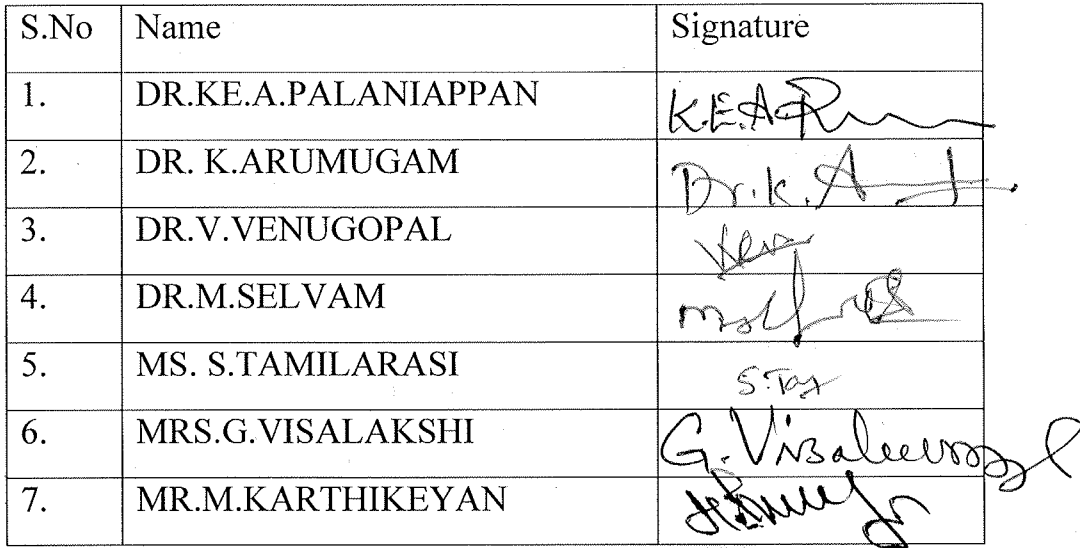 S.No Name Signature
1. DR.KE.A.PALANIAPPAN K.E.A.P
2. DR. K.ARUMUGAM Dr.K.A
3. DR.V.VENUGOPAL
4. DR.M.SELVAM
5. MS. S.TAMILARASI
6. MRS.G.VISALAKSHI G.
7. MR.M.KARTHIKEYAN